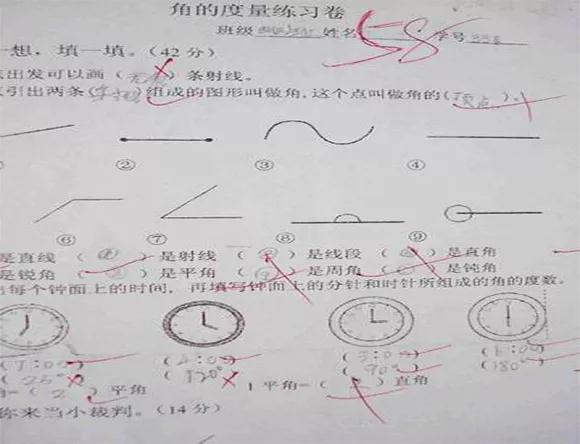 角的度量练习卷
班级 姓名 学号
一想，填一填。（42 分）
出发可以画（ ）条射线。
引出两条（ ）组成的图形叫做角，这个点叫做角的（顶点）。
58
② ③ ④
⑥ ⑦ ⑧ ⑨
是直线（ ）是射线（ ）是线段（ ）是直角
是锐角（ ）是平角（ ）是周角（ ）是钝角
每个钟面上的时间，再填写钟面上的分针和时针所组成的角的度数。
（7:00） （4:00） （3:00） （6:00）
（ ） （120° （90°） （180°
=（2）平角 1平角=（ ）直角
你来当小裁判。（14 分）